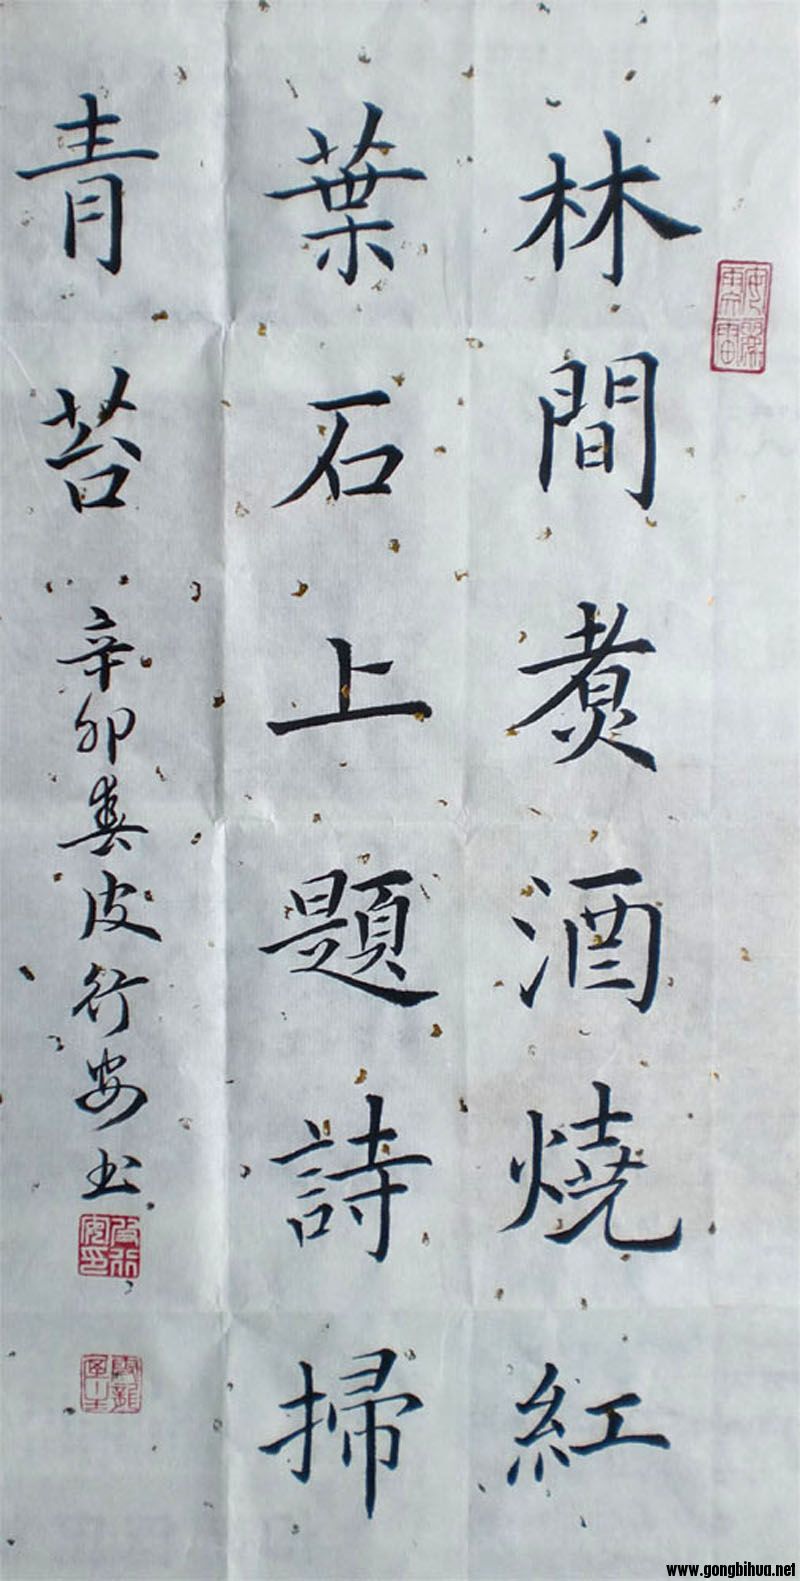 林間煑酒燒紅
葉石上題詩掃
青苔
辛卯春皮行安书
www.gongbihua.net